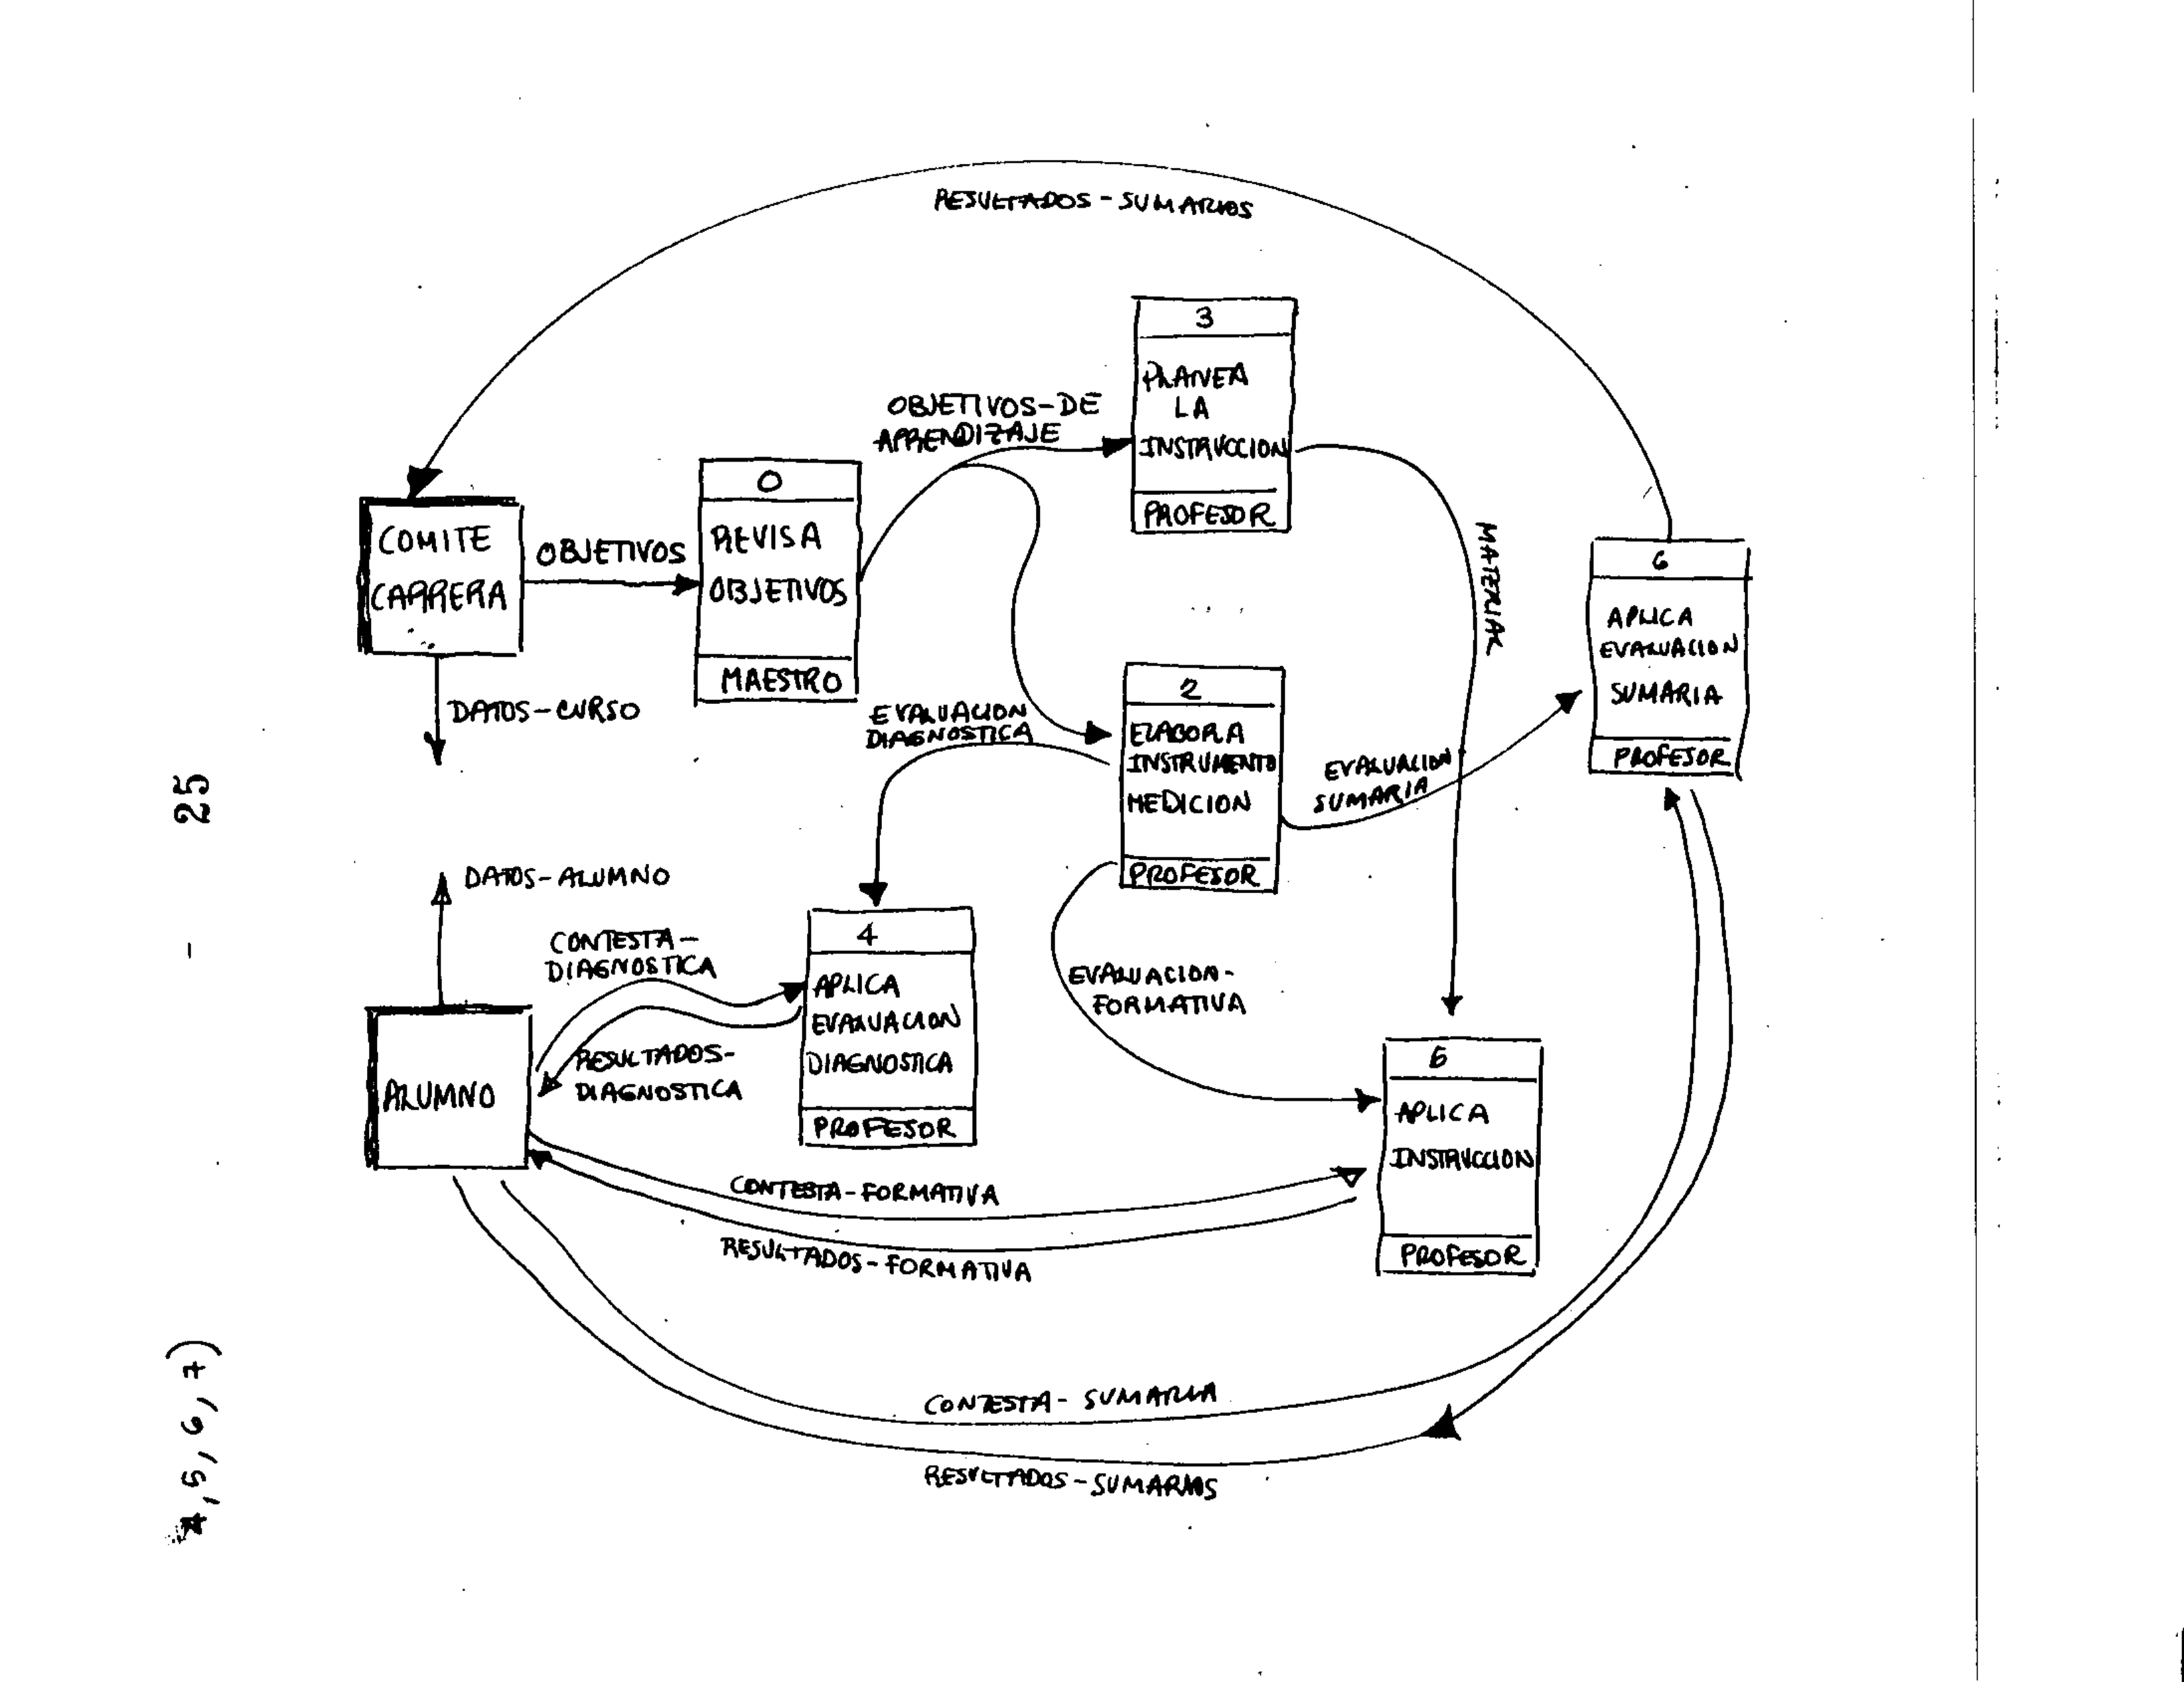 RESULTADOS-SUMARIOS
3
PLANEA
LA
INSTRUCCION
PROFESOR
OBJETIVOS-DE
APRENDIZAJE
0
REVISA
OBJETIVOS
MAESTRO
COMITE
CARRERA
OBJETIVOS
DATOS-CURSO
MATERIAL
6
APLICA
EVALUACION
SUMARIA
PROFESOR
2
ELABORA
INSTRUMENTO
MEDICION
PROFESOR
EVALUACION
DIAGNOSTICA
EVALUACION
SUMARIA
25
-
DATOS-ALUMNO
4
APLICA
EVALUACION
DIAGNOSTICA
PROFESOR
CONTESTA-
DIAGNOSTICA
RESULTADOS-
DIAGNOSTICA
ALUMNO
EVALUACION-
FORMATIVA
APLICA
INSTRUCCION
PROFESOR
CONTESTA-FORMATIVA
RESULTADOS-FORMATIVA
CONTESTA-SUMARIA
RESULTADOS-SUMARIOS
,5,6,7)